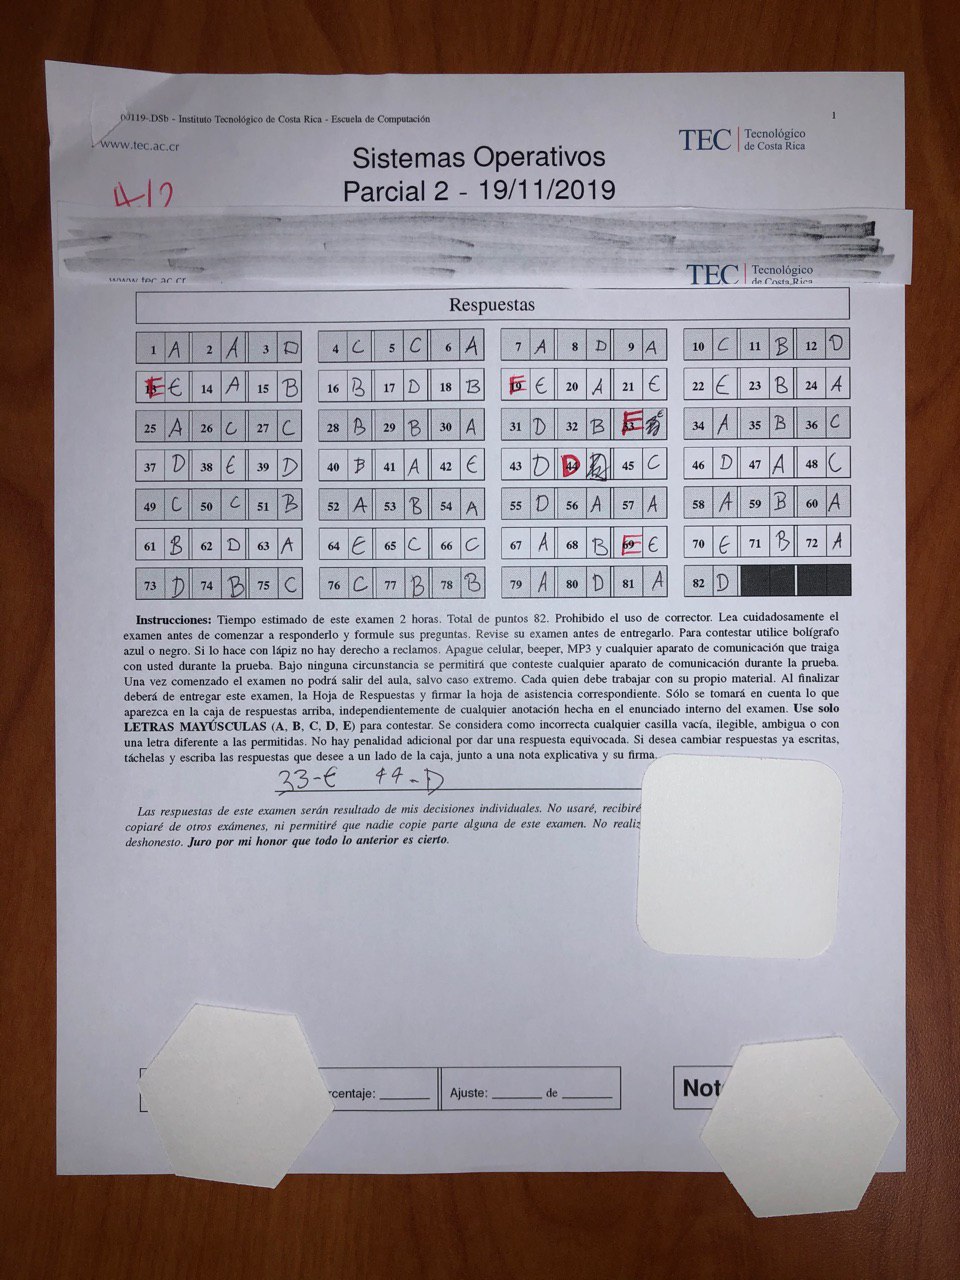 00119-.DSb - Instituto Tecnológico de Costa Rica - Escuela de Computación 1
www.tec.ac.cr
TEC Tecnológico de Costa Rica
Sistemas Operativos
Parcial 2 - 19/11/2019
TEC Tecnológico
de Costa Rica
Respuestas
1 A 2 A 3 D 4 C 5 C 6 A 7 A 8 D 9 A 10 C 11 B 12 D
E E 14 A 15 B 16 B 17 D 18 B E E 20 A 21 E 22 E 23 B 24 A
25 A 26 C 27 C 28 B 29 B 30 A 31 D 32 B E E 34 A 35 B 36 C
37 D 38 E 39 D 40 B 41 A 42 E 43 D D 45 C 46 D 47 A 48 C
49 C 50 C 51 B 52 A 53 B 54 A 55 D 56 A 57 A 58 A 59 B 60 A
61 B 62 D 63 A 64 E 65 C 66 C 67 A 68 B E E 70 E 71 B 72 A
73 D 74 B 75 C 76 C 77 B 78 B 79 A 80 D 81 A 82 D
Instrucciones: Tiempo estimado de este examen 2 horas. Total de puntos 82. Prohibido el uso de corrector. Lea cuidadosamente el
examen antes de comenzar a responderlo y formule sus preguntas. Revise su examen antes de entregarlo. Para contestar utilice bolígrafo
azul o negro. Si lo hace con lápiz no hay derecho a reclamos. Apague celular, beeper, MP3 y cualquier aparato de comunicación que traiga
con usted durante la prueba. Bajo ninguna circunstancia se permitirá que conteste cualquier aparato de comunicación durante la prueba.
Una vez comenzado el examen no podrá salir del aula, salvo caso extremo. Cada quien debe trabajar con su propio material. Al finalizar
deberá de entregar este examen, la Hoja de Respuestas y firmar la hoja de asistencia correspondiente. Sólo se tomará en cuenta lo que
aparezca en la caja de respuestas arriba, independientemente de cualquier anotación hecha en el enunciado interno del examen. Use solo
LETRAS MAYÚSCULAS (A, B, C, D, E) para contestar. Se considera como incorrecta cualquier casilla vacía, ilegible, ambigua o con
una letra diferente a las permitidas. No hay penalidad adicional por dar una respuesta equivocada. Si desea cambiar respuestas ya escritas,
táchelas y escriba las respuestas que desee a un lado de la caja, junto a una nota explicativa y su firma.
33-E 44-D
Las respuestas de este examen serán resultado de mis decisiones individuales. No usaré, recibiré
copiaré de otros exámenes, ni permitiré que nadie copie parte alguna de este examen. No realiz
deshonesto. Juro por mi honor que todo lo anterior es cierto.
rcentaje: Ajuste: de Not